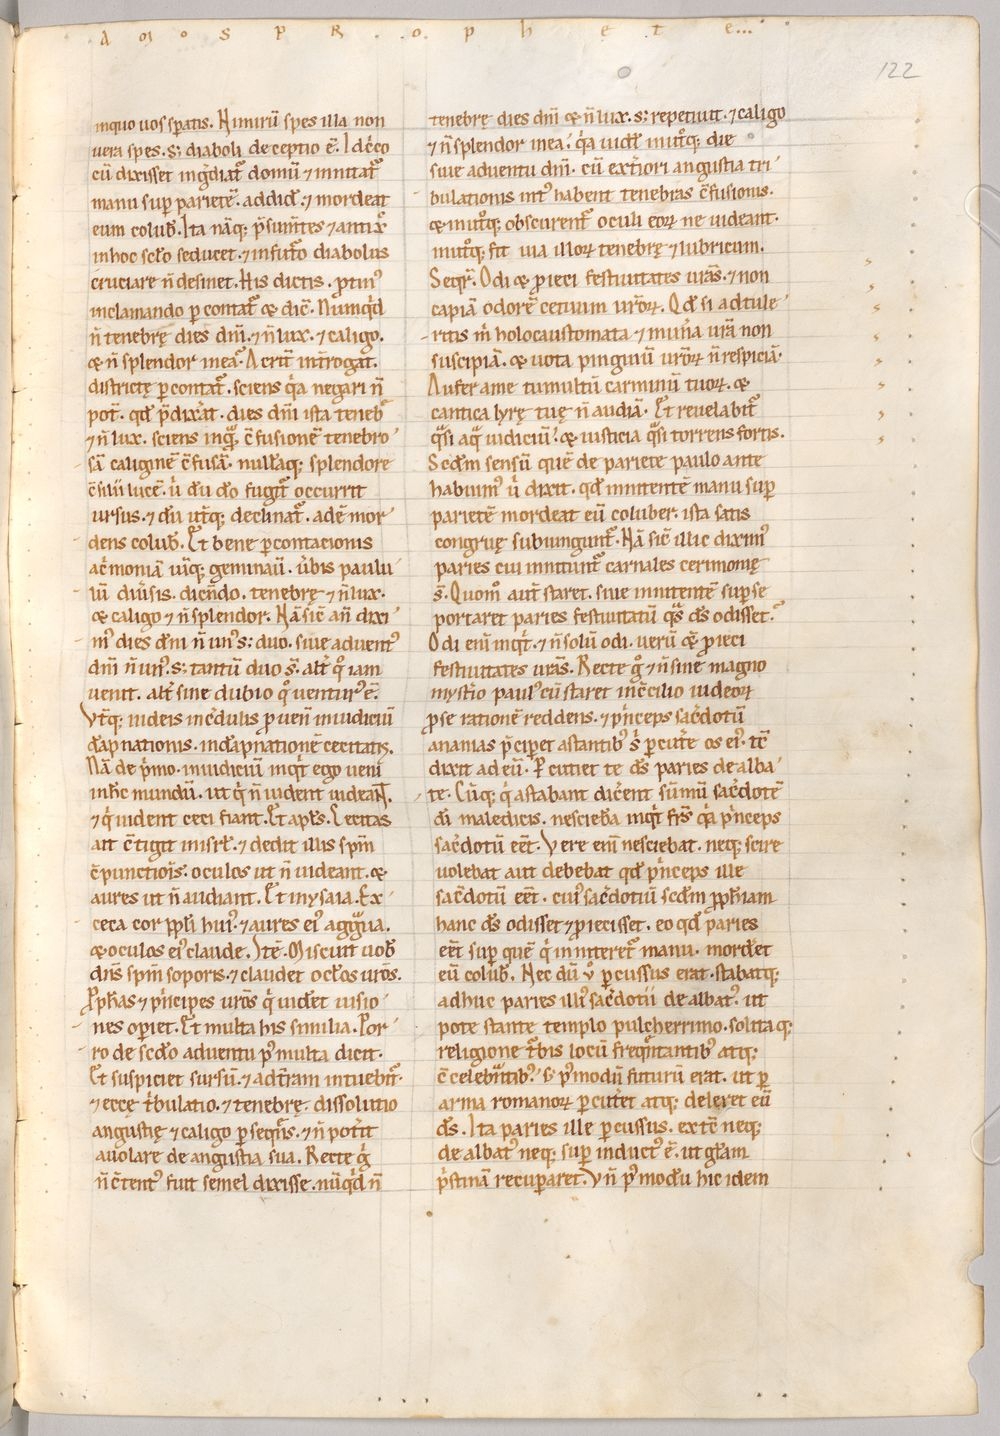 A  oı  o  S  P  R  .  .o.  p  h  e  t  e...
122
inquo uos speratis. Nimirū spes illa non
uera spes. s; diaboli deceptio ē. Idc̓co
cū dixisset ingrediat᷑ domū ⁊ innitat᷑
manu suꝑ parietē. addidit. ⁊ mordeat
eum colub̄. Ita nāq; p̄sumentes ⁊ antixp̄o
inhoc scl̄o seducet. ⁊ infuto᷑ diabolus
cruciare n̄ desinet. His dictis. ꝓtinus
inclamando ꝑcontat᷑ & dic̄. Nūmqͥd
n̄ tenebrę dies dn̄i. ⁊ n̄ lux. ⁊ caligo.
& n̄ splendor inea? Acrit̄ int̄rogat.
districtę ꝑcontat᷑. sciens qͥa negari n̄
pot̄. qd̄ p̄dixerat. dies dn̄i ista tenebrę
⁊ n̄ lux. sciens inquā. c̄fusionē tenebro
sā caliginē c̄fusā. nullāq; splendore
c̄ lucē. ū dū dō fugit᷑ occurrit
ursus. ⁊ dū ut̄q; declinat᷑. adē mor
dens colub̄. Et bene ꝑcontacionis
ac̓moniā uſq; geminauī. ūbis paulu
lū diūsis. dicendo. tenebrę ⁊ n̄ lux.
& caligo ⁊ n̄ splendor. Nā sic̄ an̄ dixi
m᷒ dies dn̄i n̄ un᷒ s; duo. siue aduent᷒
dn̄i n̄ un᷒. s; tantū duo s̄. alt̄ qͦ iam
uenit. alt̄ sine dubio qͦ ventur᷒ ē.
Vt̄q; iudeis inc̄dulis ꝓuen̄ iniudiciū
dāpnationis. indāpnationē cecitatis.
Nā de pͥmo. iniudiciū inqͥt ego ueni
inhc̄ mundū. ut qͥ n̄ uident uideant.
⁊ qͥ uident ceci fiant. Et apl̄s. Cecitas
ait c̄tigit inisrl̄. ⁊ dedit illis sp̄m
c̄punctionis. oculos ut n̄ uideant. &
aures ut n̄ audiant. Et in ysaia. Ex
ceca cor ppl̄i hui᷒. ⁊ aures ei᷒ aggraua.
& oculos ei᷒ claude. Itē. Miscuit uob̄
dn̄s sp̄m soporis. ⁊ claudet oclōs ur̄os.
Ꝓph̄as ⁊ pͥncipes ur̄os qͥ uident uisio
nes operiet. Et multa his similia. Por
ro de scd̄o aduentu p᷒ multa dicit.
Et suspiciet sursū. ⁊ adt̄ram intuebit᷑.
⁊ ecce tͥbulatio. ⁊ tenebrę. dissolutio
angustię ⁊ caligo ꝑseqn̄s. ⁊ n̄ poterit
auolare de angustia sua. Recte gͦ
n̄ c̄tent᷒ fuit semel dixisse. nūqͥd n̄
tenebrę dies dn̄i & n̄ lux. s; repetiuit. ⁊ caligo
⁊ n̄ splendor inea? qͥa uidel̄ inut̄q; die
siue aduentu dn̄i. cū ext̄iori angustia tri
bulationis int᷒ habent tenebras c̄fusionis.
& inut̄q; obscurent᷑ oculi eoꝝ ne uideant.
inut̄q; fit uia illoꝝ tenebrę ⁊ lubricum.
Seqͥt᷑. Odi & ꝓieci festiuitates ur̄as. ⁊ non
capiā odorē cetuum ur̄oꝝ. Qd̄ si adtule
ritis m̄ holocaustomata ⁊ mun̄a ur̄a non
suscipiā. & uota pinguiū ur̄oꝝ n̄ respiciā.
Aufer ame tumultū carminū tuoꝝ. &
cantica lyrę tuę n̄ audiā. Et reuelabit᷑
qͣsi aqͣ iudiciū. & iusticia qͣsi torrens fortis.
Scd̄m sensū quē de pariete paulo ante
habuim᷒ ū dixit. qd̄ innitentē manu suꝑ
parietē mordeat eū coluber. ista satis
congruę subiungunt᷑. Nā sic̄ illic diximus
paries cui innitunt᷑ carnales cerimonię
s̄. Quom̊ aut̄ staret. siue innitentē suꝑse
portaret paries festiuitatū qͣs ds̄ odisset?
Odi eni̅ inqͥt. ⁊ n̄ solū odi. uerū & ꝓieci
festiuitates ur̄as. Recte gͦ ⁊ n̄ sine magno
mysterio paul᷒ cū staret inc̄cilio iudeoꝝ
ꝓse rationē reddens. ⁊ pͥnceps sac̓dotū
ananias p̄ciperet astantib᷒ s̄ ꝑcutere os ei᷒. tc̄
dixit ad eū. Percutiet te ds̄ paries dealba
te. Cūq; qͥ astabant dic̄ent sūmū sac̓dotē
dī maledicis. nescieba inqͥt fr̄s qͥa pͥnceps
sac̓dotū eēt. Vere eni̅ nesciebat. neq; scire
uolebat aut debebat qd̄ pͥnceps ille
sac̓dotū eēt. cui᷒ sac̓dotiū scd̄m ꝓph̄iam
hanc ds̄ odisset ⁊ ꝓiecisset. eo qd̄ paries
eēt suꝑ quē qͥ inniteret᷑ manu. morderet
eū colub̄. Nec dū uͦ ꝑcussus erat. stabatq;
adhuc paries illi᷒ sac̓dotii dealbat᷒. ut
pote stante templo pulcherrimo. solitaq;
religione tͥbis locū freqͥntantib᷒ atq;
c̄celebrantib᷒. s; p᷒modū futurū erat. ut ꝑ
arma romanoꝝ ꝑcuteret atq; deleret eū
ds̄. Ita paries ille ꝑcussus. ex tē neq;
dealbat᷒ neq; suꝑinduct᷒ ē. ut gl̄am
pͥstinā recuꝑaret. Vn̄ p᷒modū hic idem